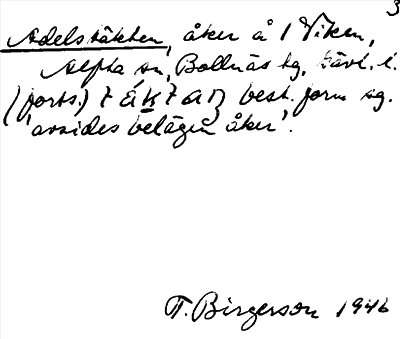 3
Adelstäkten, åker å 1 Viken,
Alfta sn, Bollnäs tg, Gävl. l.
(forts.) täktan best. form sg.
'avsides belägen åker'.
T. Birgerson 1946